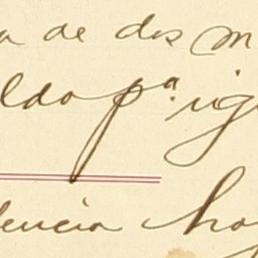 a de dos m
ldo pª. ig
dencia hoy